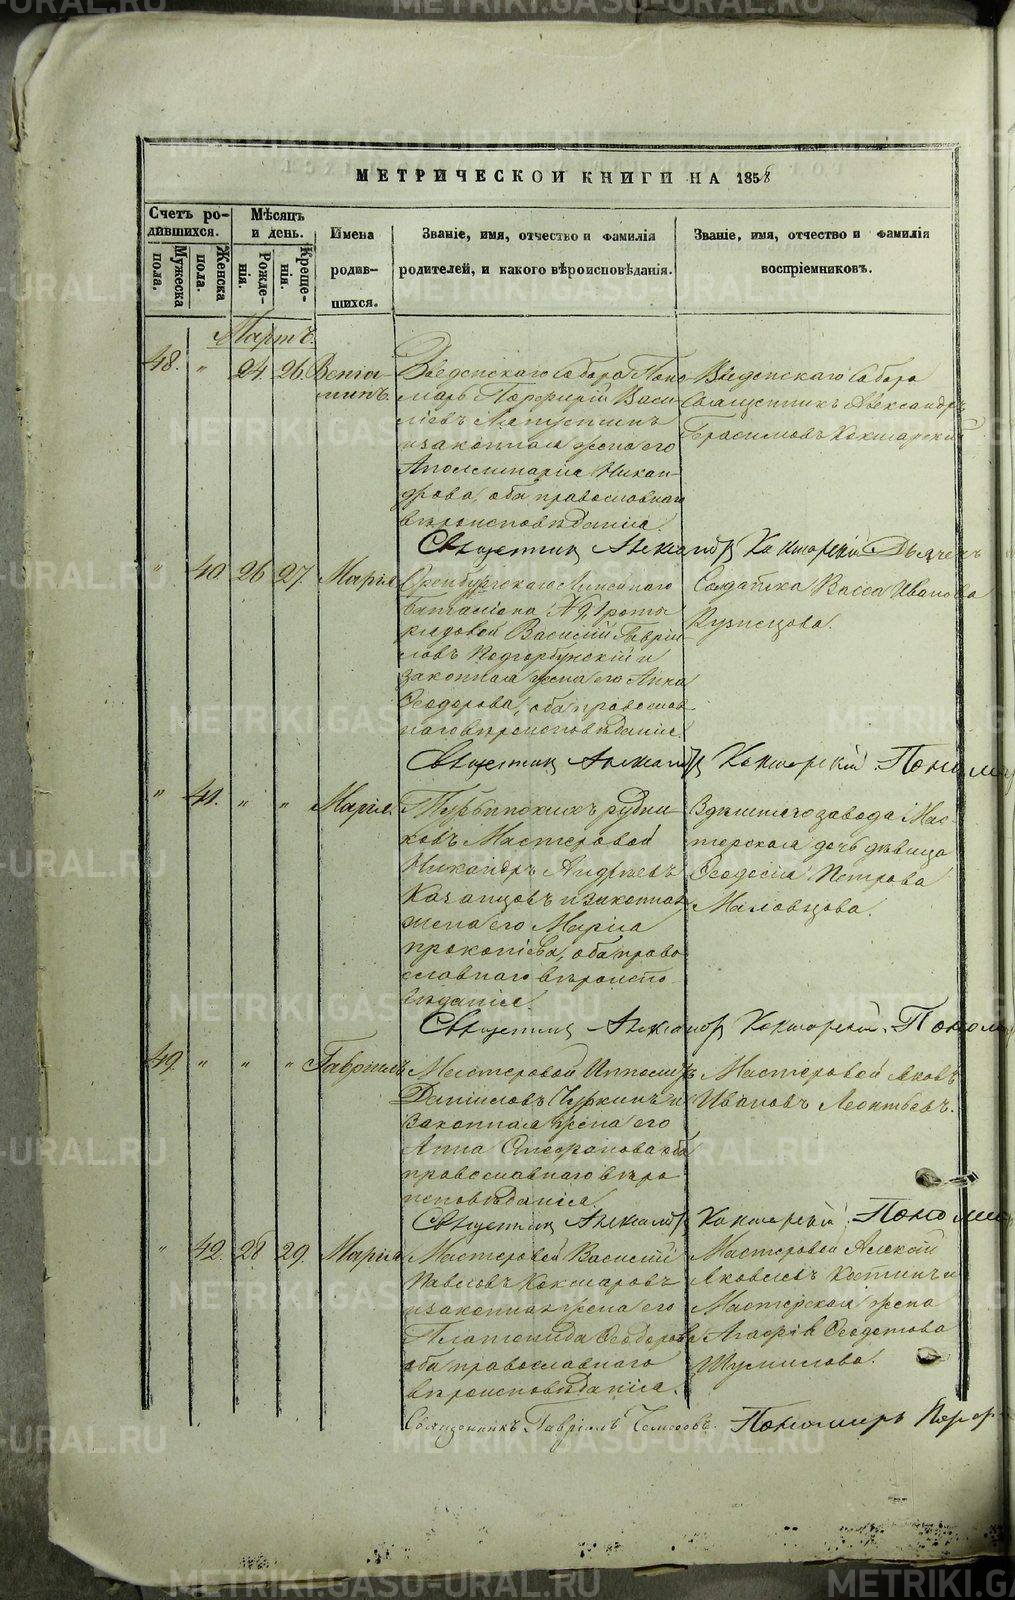 МЕТРИЧЕСКОЙ КНИГИ НА 1858
Счетъ ро-
дившихся.
Мужеска
пола.
Женска
пола.
Мѣсяцъ
и день.
Рожде-
нія.
Креще-
нія.
Имена
родив-
шихся.
Званіе, имя, отчество и фамилія
родителей, и какого вѣроисповѣданія.
Званіе, имя, отчество и фамилія
воспріемниковъ.
Мартъ.
48. " 24. 26. Веніа-
минъ.
Введенскаго Собора Поно-
марь Порфирій Васи-
ліевъ Лапустинъ
и законная жена его
Аполлинарія Никан-
дрова, оба православнаго
вѣроисповѣданія.
Введенскаго Собора
Священникъ Александръ
Герасимовъ Кокшарскій
Священникъ Александръ Кокшарскій. Дьячекъ
" 40 26 27 Марія
Оренбургскаго Линейнаго
баталіона № роты
рядовой Василій Гаврі-
ловъ Подгорбунскій и
законная жена его Анна
Ѳеодорова, оба православ-
наго вѣроисповѣданія.
Солдатка Васса Иванова
Кузнецова.
Священникъ Александръ Кокшарскій. Пономарь
" 41. " " Марія.
Турьинскихъ рудни-
ковъ Мастеровой
Никандръ Андреевъ
Казанцовъ и законная
жена его Марія
Прокопіева, оба право-
славнаго вѣроиспо-
вѣданія.
Здѣшняго завода Мас-
терская дочь дѣвица
Ѳеодосія Петрова
Маловцова.
Священникъ Александръ Кокшарскій. Поном
49. " " " Гавріилъ
Мастеровой Ипполитъ
Даниловъ Чуркинъ и
законная жена его
Анна Стефанова оба
православнаго вѣро-
исповѣданія.
Мастеровой Яковъ
Ивановъ Леонтьевъ.
Священникъ Александръ Кокшарскій. Пономар
" 42. 28 29. Марія
Мастеровой Василій
Павловъ Кокшаровъ
и законная жена его
Платонида Ѳеодорова
оба православнаго
вѣроисповѣданія.
Мастеровой Алексій
Яковлевъ Костинъ и
Мастерская жена
Агафія Ѳеодотова
Шумилова.
Священникъ Гавріилъ Пономарь Порф
METRIKI.GASO-URAL.RU